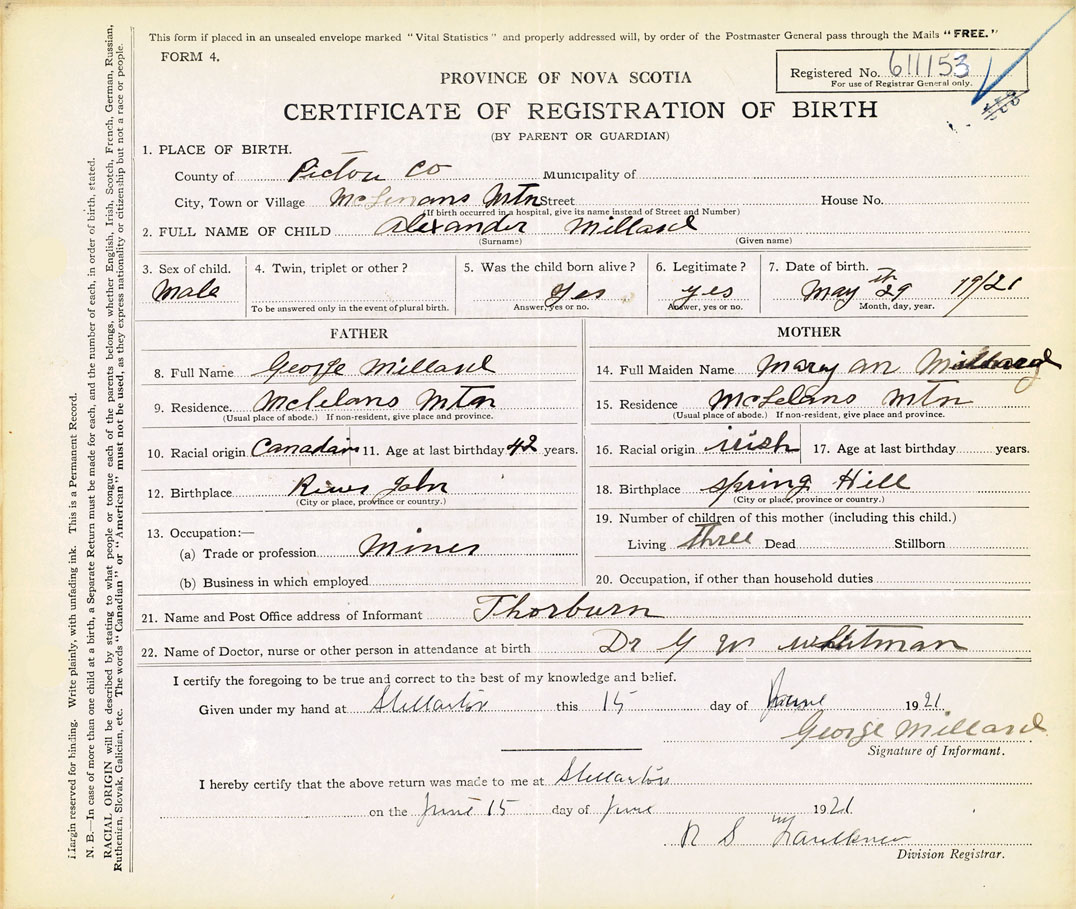 This form if placed in an unsealed envelope marked "Vital Statistics" and properly addressed will, by order of the Postmaster General pass through the Mails "FREE."
FORM 4.
Registered No. 611153
For use of Registrar General only.
PROVINCE OF NOVA SCOTIA
CERTIFICATE OF REGISTRATION OF BIRTH
(BY PARENT OR GUARDIAN)
1. PLACE OF BIRTH.
County of Pictou Co Municipality of
City, Town or Village Mtn Street House No.
(If birth occurred in a hospital, give its name instead of Street and Number)
2. FULL NAME OF CHILD Alexander Millard
(Surname) (Given name)
3. Sex of child. 4. Twin, triplet or other? 5. Was the child born alive? 6. Legitimate? 7. Date of birth.
Male Yes yes May 29th 1921
To be answered only in the event of plural birth. Answer, yes or no. Answer, yes or no. Month, day, year.
FATHER MOTHER
8. Full Name George Millard 14. Full Maiden Name Mary an
9. Residence. Mclelans Mtn 15. Residence McLelans Mtn
(Usual place of abode.) If non-resident, give place and province. (Usual place of abode.) If non-resident, give place and province.
10. Racial origin Canadain 11. Age at last birthday 42 years. 16. Racial origin irish 17. Age at last birthday years.
12. Birthplace River John 18. Birthplace spring Hill
(City or place, province or country.) (City or place, province or country.)
13. Occupation:— 19. Number of children of this mother (including this child.)
(a) Trade or profession Miner Living Three Dead Stillborn
(b) Business in which employed 20. Occupation, if other than household duties
21. Name and Post Office address of Informant Thorburn
22. Name of Doctor, nurse or other person in attendance at birth Dr G W Whitman
I certify the foregoing to be true and correct to the best of my knowledge and belief.
Given under my hand at Stellarton this 15 day of June 1921.
George Millard
Signature of Informant.
I hereby certify that the above return was made to me at Stellarton
on the June 15 day of June 1921
R S Faulkner
Division Registrar.
Margin reserved for binding. Write plainly, with unfading ink. This is a Permanent Record.
N. B.—In case of more than one child at a birth, a Separate Return must be made for each, and the number of each, in order of birth, stated.
RACIAL ORIGIN will be described by stating to what people or tongue each of the parents belongs, whether English, Irish, Scotch, French, German, Russian,
Ruthenian, Slovak, Galician, etc. The words "Canadian" or "American" must not be used, as they express nationality or citizenship but not a race or people.